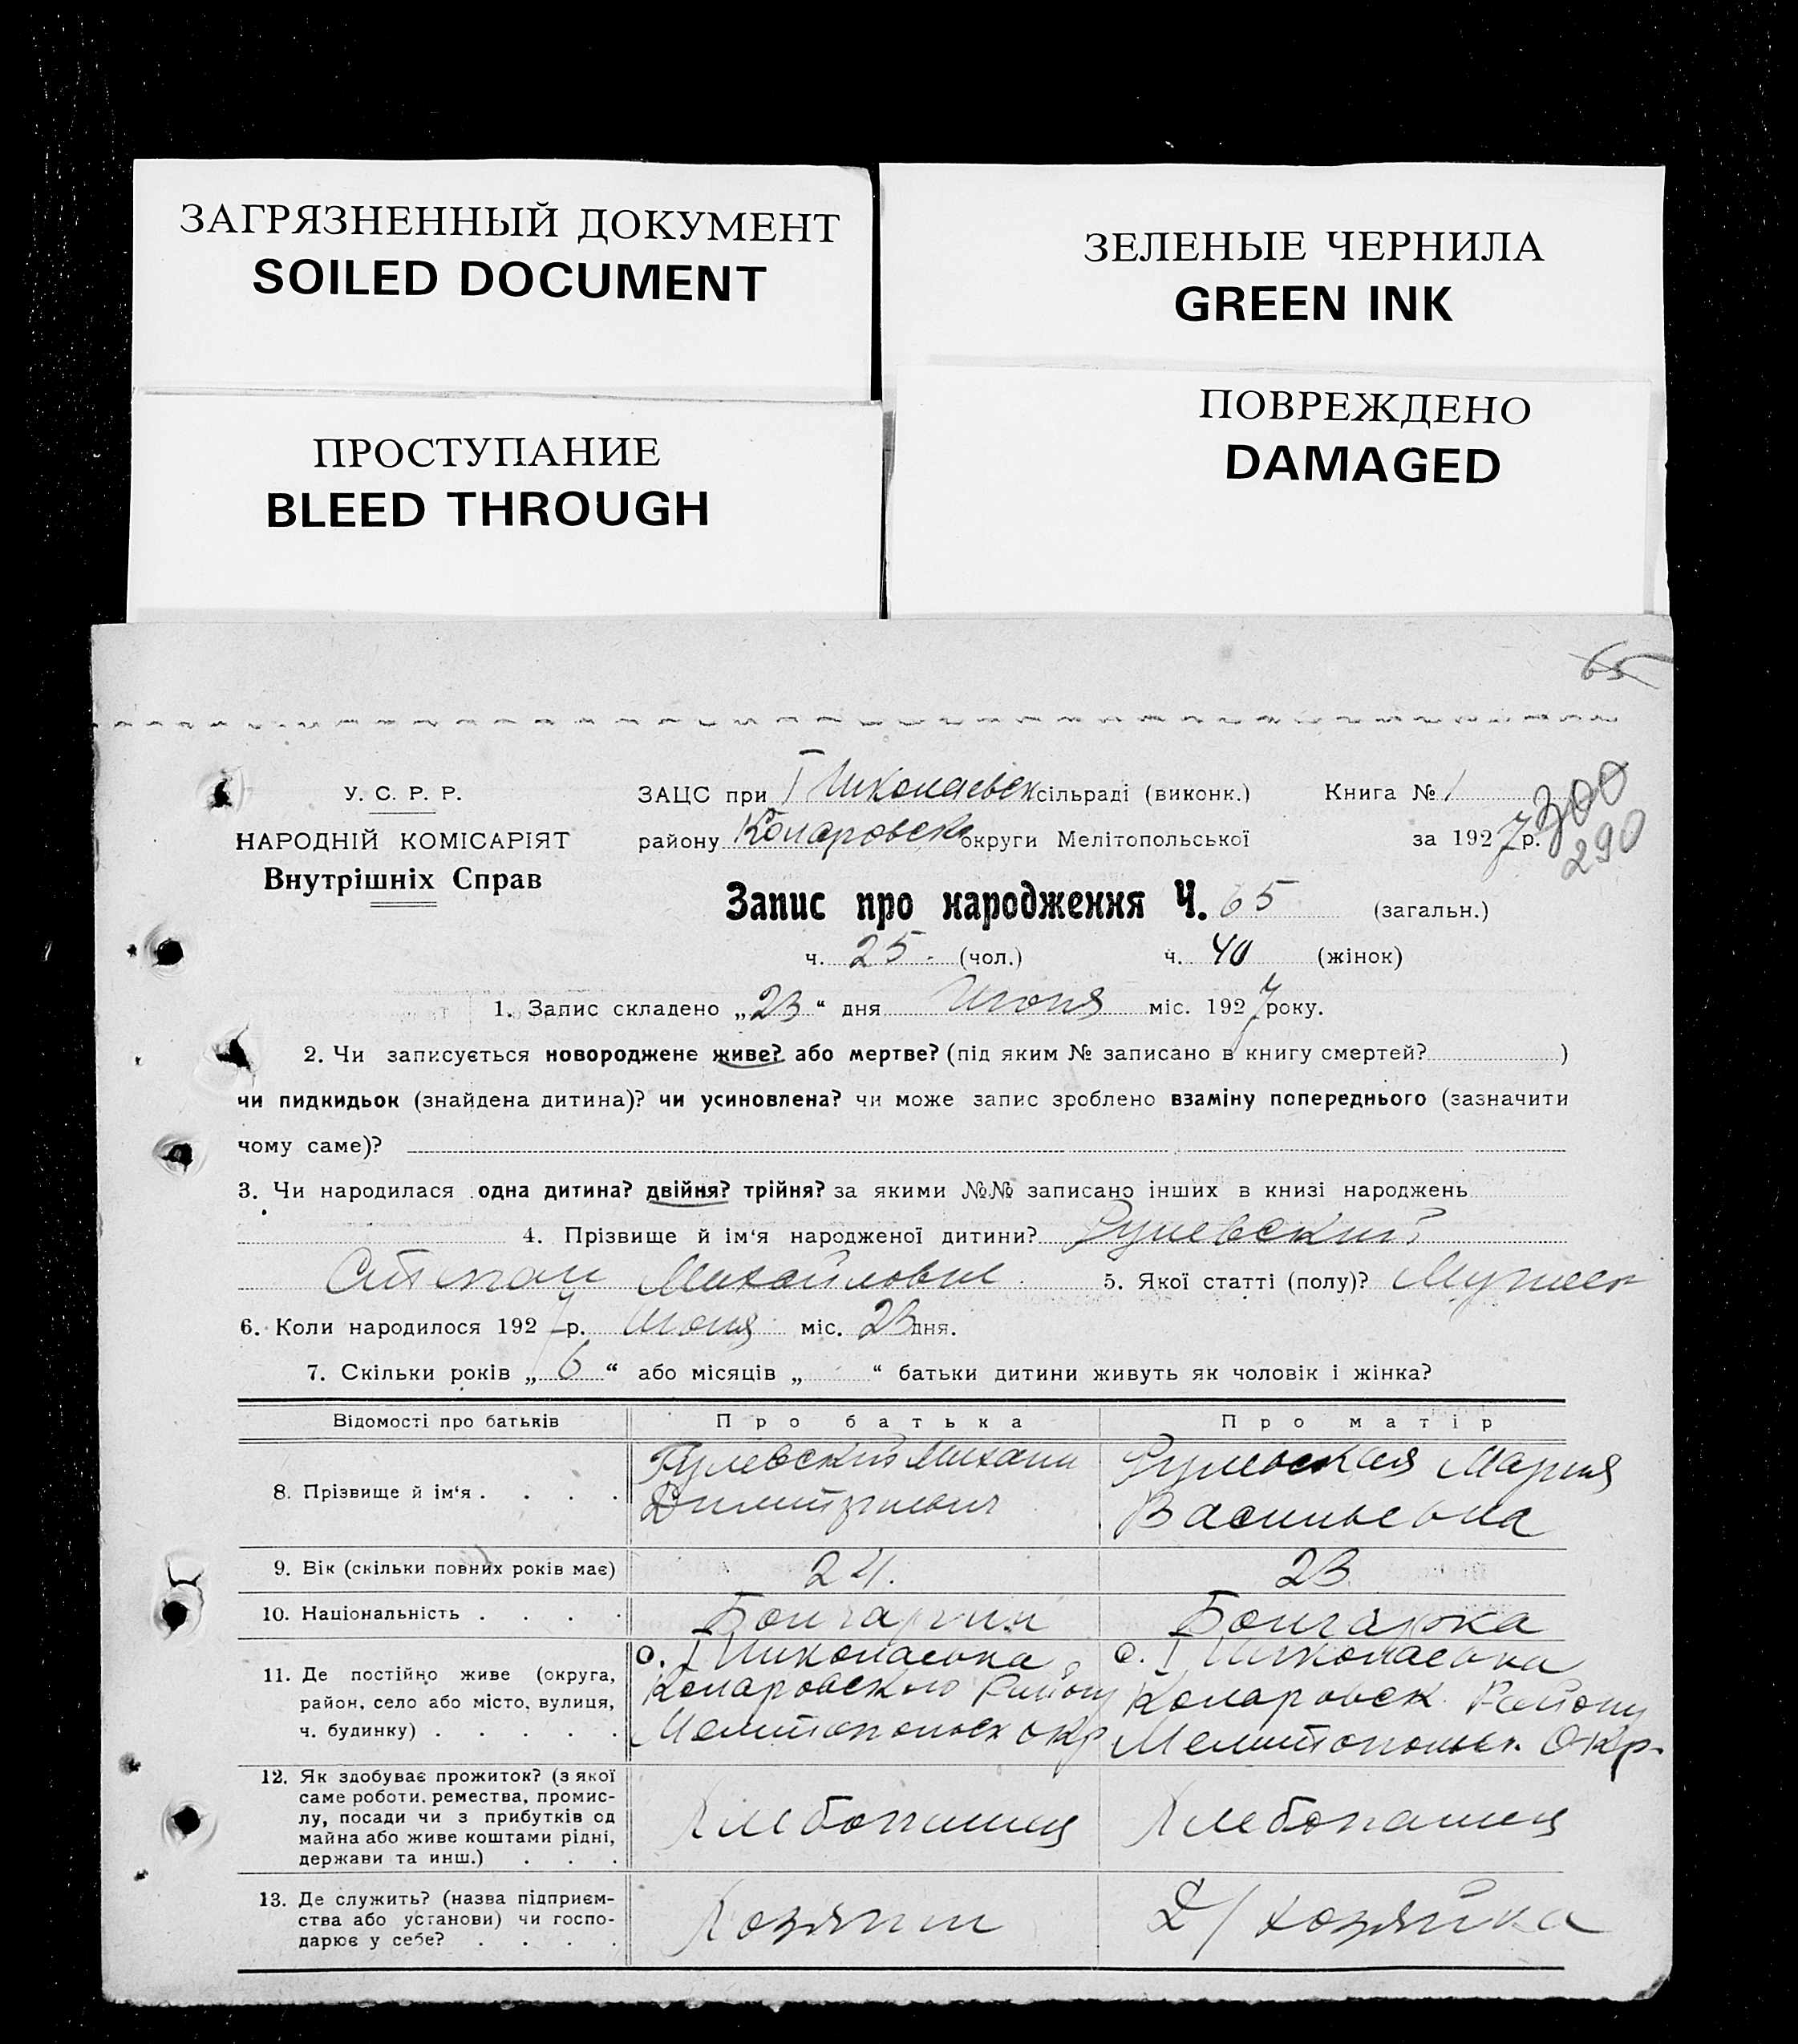 ЗАГРЯЗНЕННЫЙ ДОКУМЕНТ
SOILED DOCUMENT
ЗЕЛЕНЫЕ ЧЕРНИЛА
GREEN INK
ПРОСТУПАНИЕ
BLEED THROUGH
ПОВРЕЖДЕНО
DAMAGED
65
У. С. Р. Р.
НАРОДНІЙ КОМІСАРІЯТ
Внутрішніх Справ
ЗАЦС при І Николаевск сільраді (виконк.) Книга № 1
району Коларовск округи Мелітопольської за 1927 р.
300
290
Запис про народження Ч. 65 (загальн.)
ч. 25. (чол.) ч. 40 (жінок)
1. Запис складено „23“ дня Июня міс. 1927 року.
2. Чи записується новороджене живе? або мертве? (під яким № записано в книгу смертей? )
чи пидкидьок (знайдена дитина)? чи усиновлена? чи може запис зроблено взаміну попереднього (зазначити
чому саме)?
3. Чи народилася одна дитина? двійня? трійня? за якими №№ записано інших в книзі народжень
4. Прізвище й ім‘я народженої дитини?
Степан Михайлович 5. Якої статті (полу)? Мужск
6. Коли народилось 1927 р. Июня міс. 23 дня.
7. Скільки років „6“ або місяців „ “ батьки дитини живуть як чоловік і жінка?
Відомості про батьків Про батька Про матір
8. Прізвище й ім‘я . . . . Гулевский Михаил
Димитриевич
Гулевская Мария
Васильевна
9. Вік (скільки повних років має) 24. 23
10. Національність . . . . Болгарин Болгарка
11. Де постійно живе (округа,
район, село або місто, вулиця,
ч. будинку) . . . . .
с. І Николаевка
Коларовского Району
Мелитопольск окр
с. І Николаевка
Коларовск Району
Мелитопольск. Окр.
12. Як здобуває прожиток? (з якої
саме роботи, ремества, промис-
лу, посади чи з прибутків од
майна або живе коштами рідні,
держави та инш.) . . .
Хлебопашец
Хлебопашец
13. Де служить? (назва підприєм-
ства або установи) чи госпо-
дарює у себе? . . . .
Хозяин
Д/хозяйка